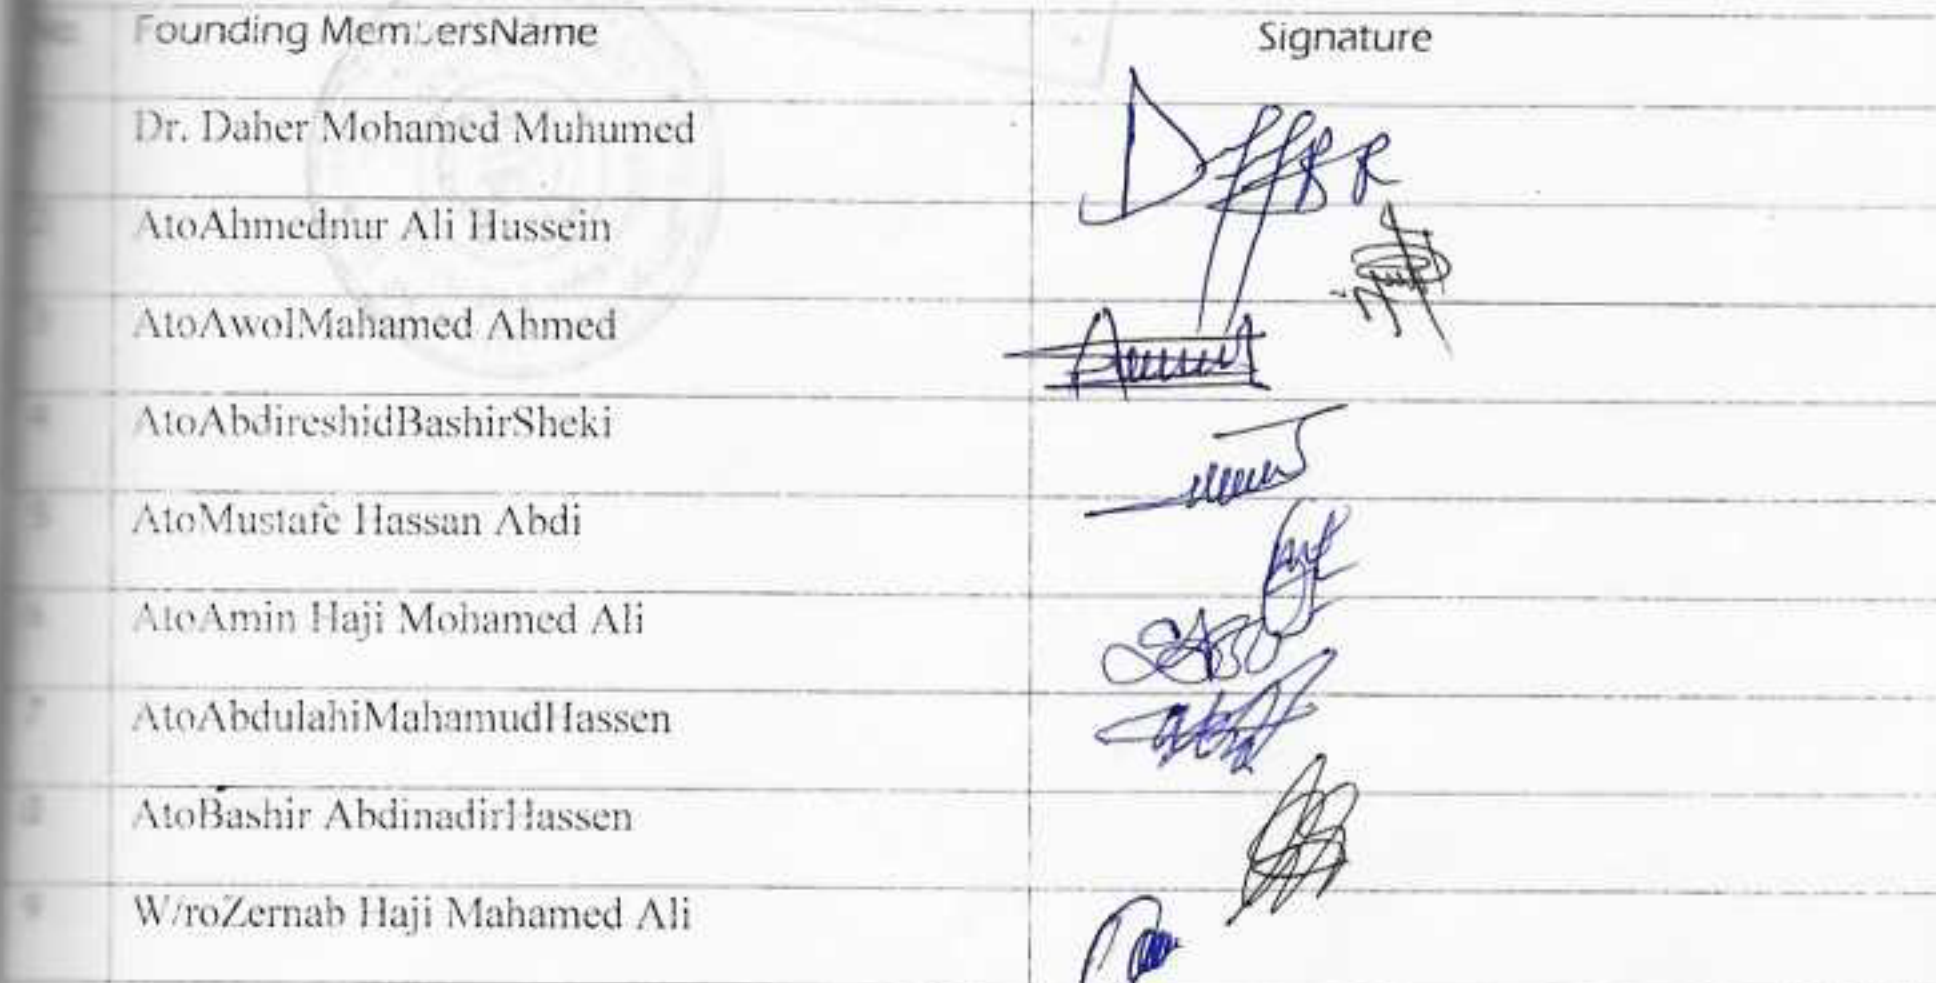 Founding MembersName Signature
Dr. Daher Mohamed Muhumed
2 AtoAhmednur Ali Hussein
3 AtoAwolMahamed Ahmed
4 AtoAbdireshidBashirSheki
5 AtoMustafe Hassan Abdi
6 AtoAmin Haji Mohamed Ali
7 AtoAbdulahiMahamudHassen
8 AtoBashir AbdinadirHassen
9 W/roZernab Haji Mahamed Ali